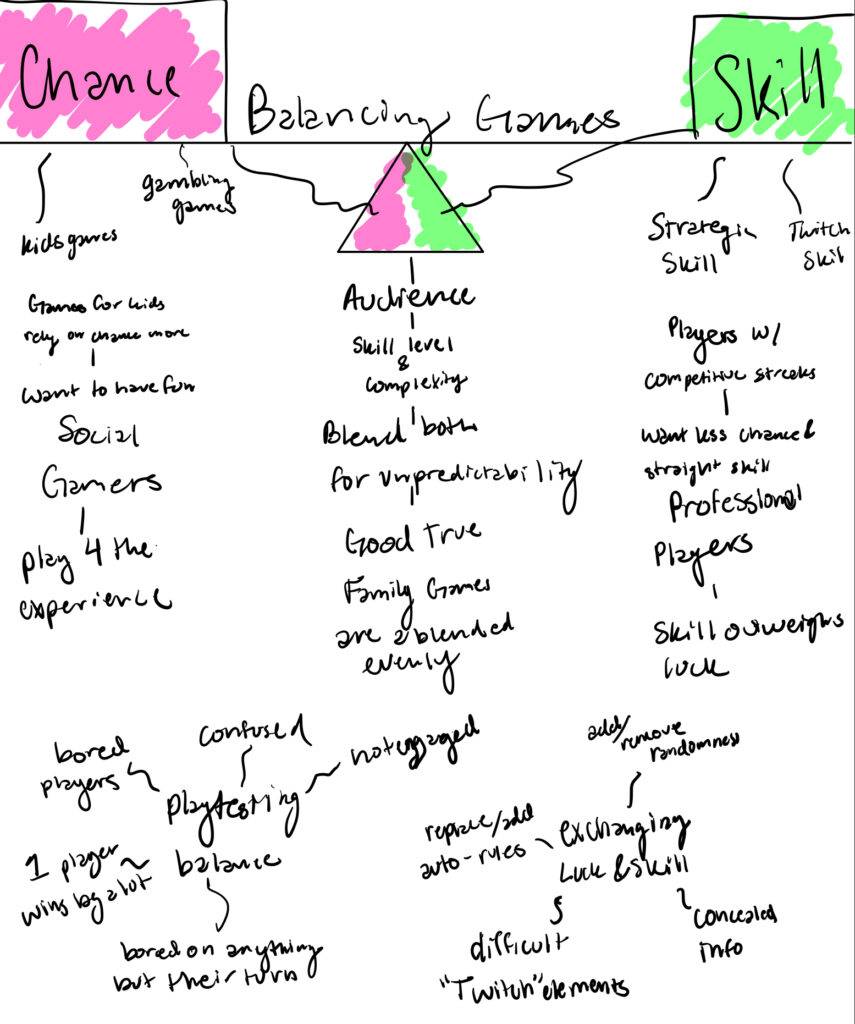 Chance
Balancing Games
Skill
kids games
gambling
games
Games for kids
rely on chance more
want to have fun
Social
Gamers
play 4 the
experience
Audience
Skill level
&
complexity
Blend both
for unpredictability
Good True
Family Games
are a blended
evenly
Strategic
Skill
Twitch
Skill
Players w/
competitive streaks
want less chance &
straight skill
Professional
Players
Skill outweighs
luck
bored
players
confused
not engaged
playtesting
balance
1 player
wins by a lot
bored on anything
but their turn
add/
remove
randomness
replace/add
auto-rules
exchanging
Luck & Skill
difficult
"Twitch" elements
concealed
info